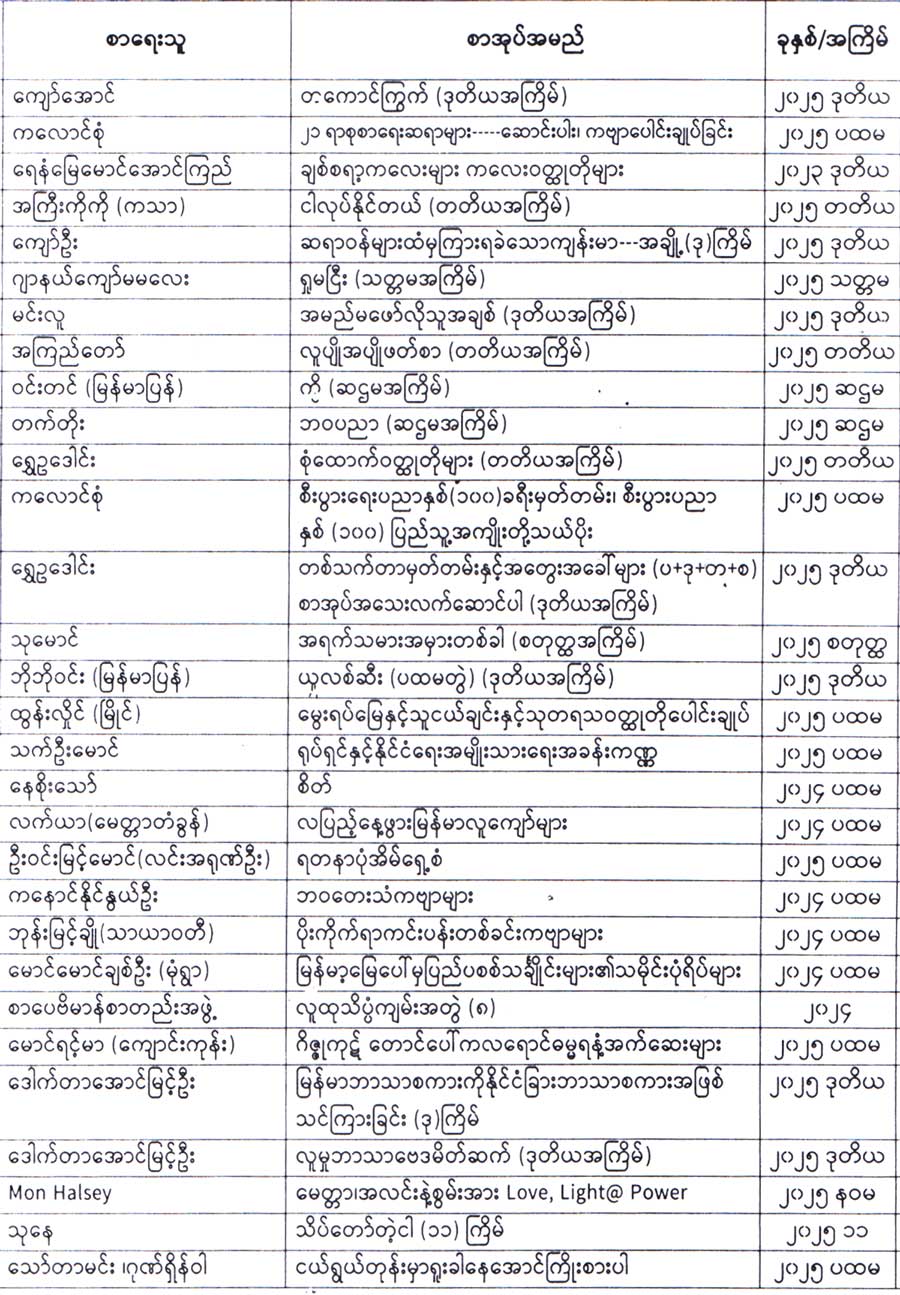 စာရေးသူ စာအုပ်အမည် ခုနှစ်/အကြိမ်
ကျော်အောင် တကောင်ကြွက် (ဒုတိယအကြိမ်) ၂၀၂၅ ဒုတိယ
ကလောင်စုံ ၂၁ ရာစုစာရေးဆရာများ-----ဆောင်းပါး၊ ကဗျာပေါင်းချုပ်ခြင်း ၂၀၂၅ ပထမ
ရေနံမြေမောင်အောင်ကြည် ချစ်စရာ့ကလေးများ ကလေးဝတ္ထုတိုများ ၂၀၂၃ ဒုတိယ
အကြီးကိုကို (ကသာ) ငါလုပ်နိုင်တယ် (တတိယအကြိမ်) ၂၀၂၅ တတိယ
ကျော်ဦး ဆရာဝန်များထံမှကြားရခဲသောကျန်းမာ---အချို့(ဒု)ကြိမ် ၂၀၂၅ ဒုတိယ
ဂျာနယ်ကျော်မမလေး ရှုမငြီး (သတ္တမအကြိမ်) ၂၀၂၅ သတ္တမ
မင်းလူ အမည်မဖော်လိုသူအချစ် (ဒုတိယအကြိမ်) ၂၀၂၅ ဒုတိယ
အကြည်တော် လူပျိုအပျိုဖတ်စာ (တတိယအကြိမ်) ၂၀၂၅ တတိယ
ဝင်းတင် (မြန်မာပြန်) ကို (ဆဌမအကြိမ်) ၂၀၂၅ ဆဌမ
တက်တိုး ဘဝပညာ (ဆဌမအကြိမ်) ၂၀၂၅ ဆဌမ
ရွှေဥဒေါင်း စုံထောက်ဝတ္ထုတိုများ (တတိယအကြိမ်) ၂၀၂၅ တတိယ
ကလောင်စုံ စီးပွားရေးပညာနှစ်(၁၀၀)ခရီးမှတ်တမ်း၊ စီးပွားပညာ ၂၀၂၅ ပထမ
နှစ် (၁၀၀) ပြည်သူ့အကျိုးတို့သယ်ပိုး
ရွှေဥဒေါင်း တစ်သက်တာမှတ်တမ်းနှင့်အတွေးအခေါ်များ (ပ+ဒု+တ+စ) ၂၀၂၅ ဒုတိယ
စာအုပ်အသေးလက်ဆောင်ပါ (ဒုတိယအကြိမ်)
သုမောင် အရက်သမားအမှားတစ်ခါ (စတုတ္ထအကြိမ်) ၂၀၂၅ စတုတ္ထ
ဘိုဘိုဝင်း (မြန်မာပြန်) ယူလစ်ဆီး (ပထမတွဲ) (ဒုတိယအကြိမ်) ၂၀၂၅ ဒုတိယ
ထွန်းလှိုင် (မြိုင်) မွေးရပ်မြေနှင့်သူငယ်ချင်းနှင့်သုတရသဝတ္ထုတိုပေါင်းချုပ် ၂၀၂၅ ပထမ
သက်ဦးမောင် ရုပ်ရှင်နှင့်နိုင်ငံရေးအမျိုးသားရေးအခန်းကဏ္ဍ ၂၀၂၅ ပထမ
နေစိုးသော် စိတ် ၂၀၂၄ ပထမ
လက်ယာ(မေတ္တာတံခွန်) လပြည့်နေ့ဖွားမြန်မာလူကျော်များ ၂၀၂၄ ပထမ
ဦးဝင်းမြင့်မောင်(လင်းအရုဏ်ဦး) ရတနာပုံအိမ်ရှေ့စံ ၂၀၂၅ ပထမ
ကနောင်နိုင်နွယ်ဦး ဘဝတေးသံကဗျာများ ၂၀၂၄ ပထမ
ဘုန်းမြင့်ချို(သာယာဝတီ) ပိုးကိုက်ရာကင်းပန်းတစ်ခင်းကဗျာများ ၂၀၂၄ ပထမ
မောင်မောင်ချစ်ဦး (မုံရွာ) မြန်မာ့မြေပေါ်မှပြည်ပစစ်သင်္ချိုင်းများ၏သမိုင်းပုံရိပ်များ ၂၀၂၄ ပထမ
စာပေဗိမာန်စာတည်းအဖွဲ့ လူထုသိပ္ပံကျမ်းအတွဲ (၈) ၂၀၂၄
မောင်ရင့်မာ (ကျောင်းကုန်း) ဂိဇ္ဈကုဋ် တောင်ပေါ်ကလရောင်ဓမ္မရနံ့အက်ဆေးများ ၂၀၂၅ ပထမ
ဒေါက်တာအောင်မြင့်ဦး မြန်မာဘာသာစကားကိုနိုင်ငံခြားဘာသာစကားအဖြစ် ၂၀၂၅ ဒုတိယ
သင်ကြားခြင်း (ဒု)ကြိမ်
ဒေါက်တာအောင်မြင့်ဦး လူမှုဘာသာဗေဒမိတ်ဆက် (ဒုတိယအကြိမ်) ၂၀၂၅ ဒုတိယ
Mon Halsey မေတ္တာ၊အလင်းနဲ့စွမ်းအား Love, Light@ Power ၂၀၂၅ နဝမ
သုနေ သိပ်တော်တဲ့ငါ (၁၁) ကြိမ် ၂၀၂၅ ၁၁
သော်တာမင်း ၊ဂုဏ်ရှိန်ဝါ ငယ်ရွယ်တုန်းမှာရူးခါနေအောင်ကြိုးစားပါ ၂၀၂၅ ပထမ